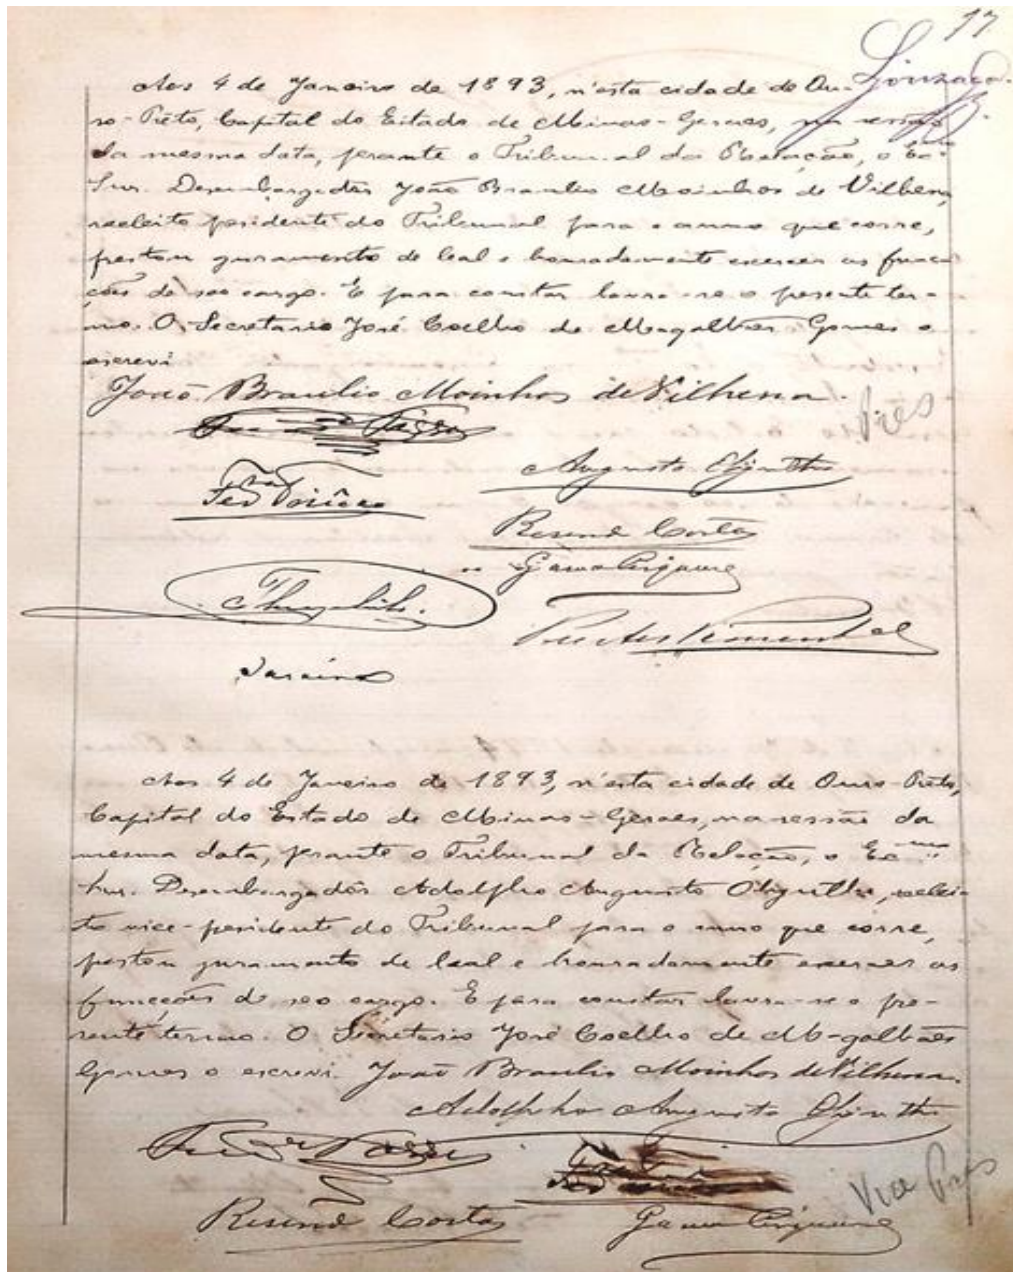 17
Gonzaga
Aos 4 de Janeiro de 1893, n'esta cidade de Ou-
ro-Preto, Capital do Estado de Minas-Geraes, na sessão
da mesma data, perante o Tribunal da Relação, o Exmo
Snr. Desembargador João Braulio Moinhos de Vilhena,
reeleito presidente do Tribunal para o anno que corre,
prestou juramento de leal e honradamente exercer as func-
ções de seo cargo. E para constar lavra-se o presente ter-
mo. O Secretario José Coelho de Magalhães Gomes o
escrevi
João Braulio Moinhos de Vilhena.
Pres
Augusto Olyntho
Resende Costa
Gama Cerqueira
Pimentel
Saraiva
Aos 4 de Janeiro de 1893, n'esta cidade de Ouro-Preto,
Capital do Estado de Minas-Geraes, na sessão da
mesma data, perante o Tribunal da Relação, o Exmo
Snr. Desembargador Adolpho Augusto Olyntho, reelei-
to vice-presidente do Tribunal para o anno que corre,
prestou juramento de leal e honradamente exercer as
funcções de seo cargo. E para constar lavra-se o pre-
sente termo. O Secretario José Coelho de Magalhães
Gomes o escrevi. João Braulio Moinhos de Vilhena.
Adolpho Augusto Olyntho
Vice Pres
Resende Costa
Gama Cerqueira